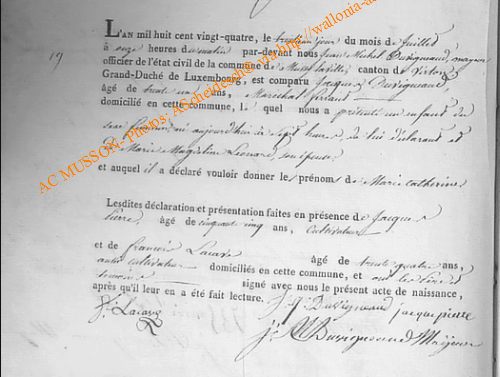 19
L'AN mil huit cent vingt-quatre, le troisième jour du mois de Juillet
à onze heures du matin par-devant nous Jean Michel Duvigneaud, mayeur
officier de l'état civil de la commune de Mussy la ville, canton de Virton
Grand-Duché de Luxembourg, est comparu Jacques Duvigneaud,
âgé de trente un ans, Maréchal ferrant
domicilié en cette commune, le quel nous a présenté un enfant du
sexe féminin, né aujourd'hui à sept heures de lui déclarant et
de Marie Magdeline Leonard, son épouse
et auquel il a déclaré vouloir donner les prénoms de Marie catherine
Lesdites déclaration et présentation faites en présence de Jacque
Pierre, âgé de cinquante cinq ans, Cultivateur
et de francois Lacave âgé de trente quatre ans,
aussi cultivateur domiciliés en cette commune, et ont les père et
témoins signé avec nous le présent acte de naissance,
après qu'il leur en a été fait lecture.
J. Duvigneaud jacque pierre
f. Lacave
J. M Duvigneaud Mayeur
AC MUSSON- Photos: AScheidecker via http://wallonia-as